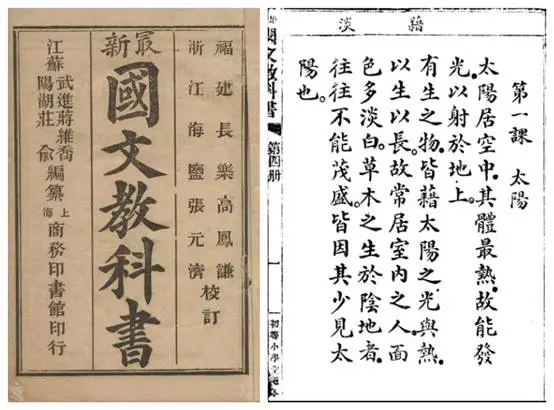 福建長樂高鳳謙
浙江海鹽張元濟
校訂
最新
國文教科書
江蘇
武進蔣維喬
陽湖莊 俞
編纂
上海
商務印書館印行
藉 淡
第一課 太陽
太陽居空中。其體最熱。故能發
光。以射於地上。
有生之物。皆藉太陽之光與熱。
以生以長。故常居室內之人。面
色多淡白。草木之生於陰地者。
往往不能茂盛。皆因其少見太
陽也。
國文教科書 第四册
初等小學堂